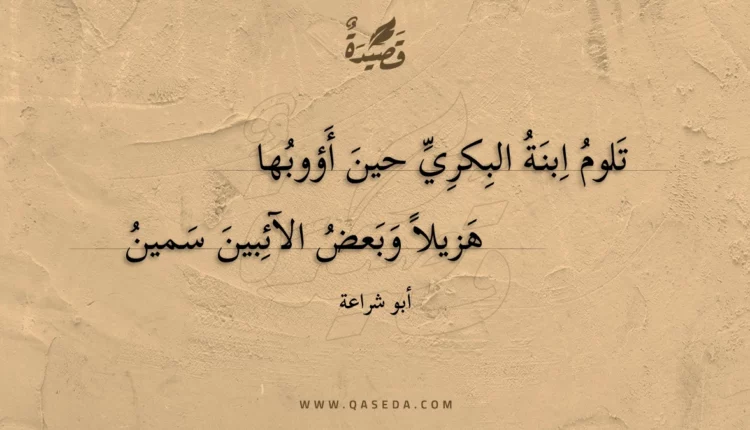 قَصِيدَةٌ
تَلومُ اِبنَةُ البِكرِيِّ حينَ أَؤوبُها
هَزيلاً وَبَعضُ الآئِبينَ سَمينُ
أبو شراعة
WWW.QASEDA.COM